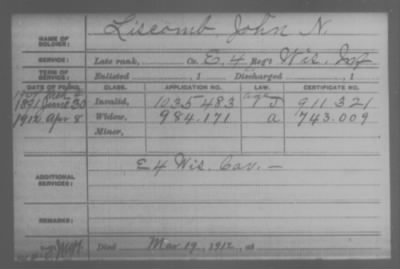 NAME OF SOLDIER: Liscomb, John N.
SERVICE: Late rank, Co. E, 4 Reg't Wis. Inf
TERM OF SERVICE: Enlisted , 1 Discharged , 1
DATE OF FILING. CLASS. APPLICATION NO. LAW. CERTIFICATE NO.
1891 June 30 Invalid, 1035483 J 911321
1912 Apr 8 Widow, 984.171 a 743.009
Minor,
ADDITIONAL SERVICES: E 4 Wis. Cav. —
REMARKS:
Died Mar 19, 1912, at